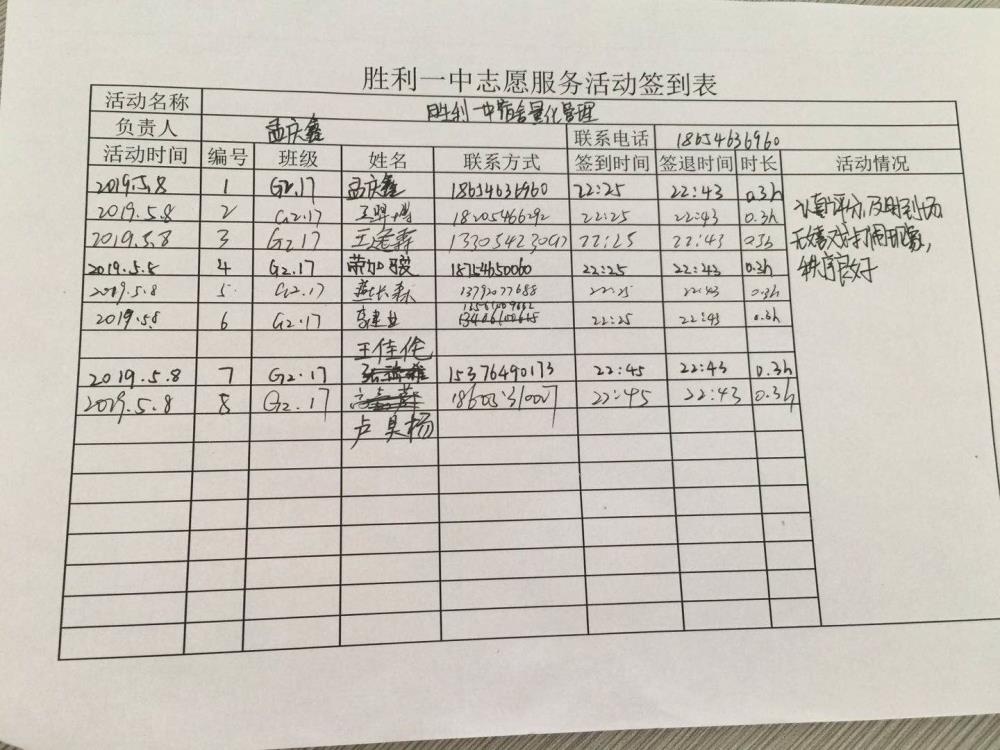 胜利一中志愿服务活动签到表
活动名称 胜利一中宿舍量化管理
负责人 孟庆鑫 联系电话 18654636960
活动时间 编号 班级 姓名 联系方式 签到时间 签退时间 时长 活动情况
2019.5.8 1 G2.17 孟庆鑫 18654636960 22:25 22:43 0.3h
2019.5.8 2 G2.17 18205466292 22:25 22:43 0.3h
2019.5.8 3 G2.17 22:25 22:43 0.3h
2019.5.8 4 G2.17 18754650060 22:25 22:43 0.3h
2019.5.8 5 G2.17 13792077688 22:25 22:43 0.3h
2019.5.8 6 G2.17 李建业 22:25 22:43 0.3h
王佳伦
2019.5.8 7 G2.17 15376490173 22:45 22:43 0.3h
2019.5.8 8 G2.17 22:45 22:43 0.3h
卢昊杨
认真评分,及时到场
无嬉戏打闹现象,
秩序良好